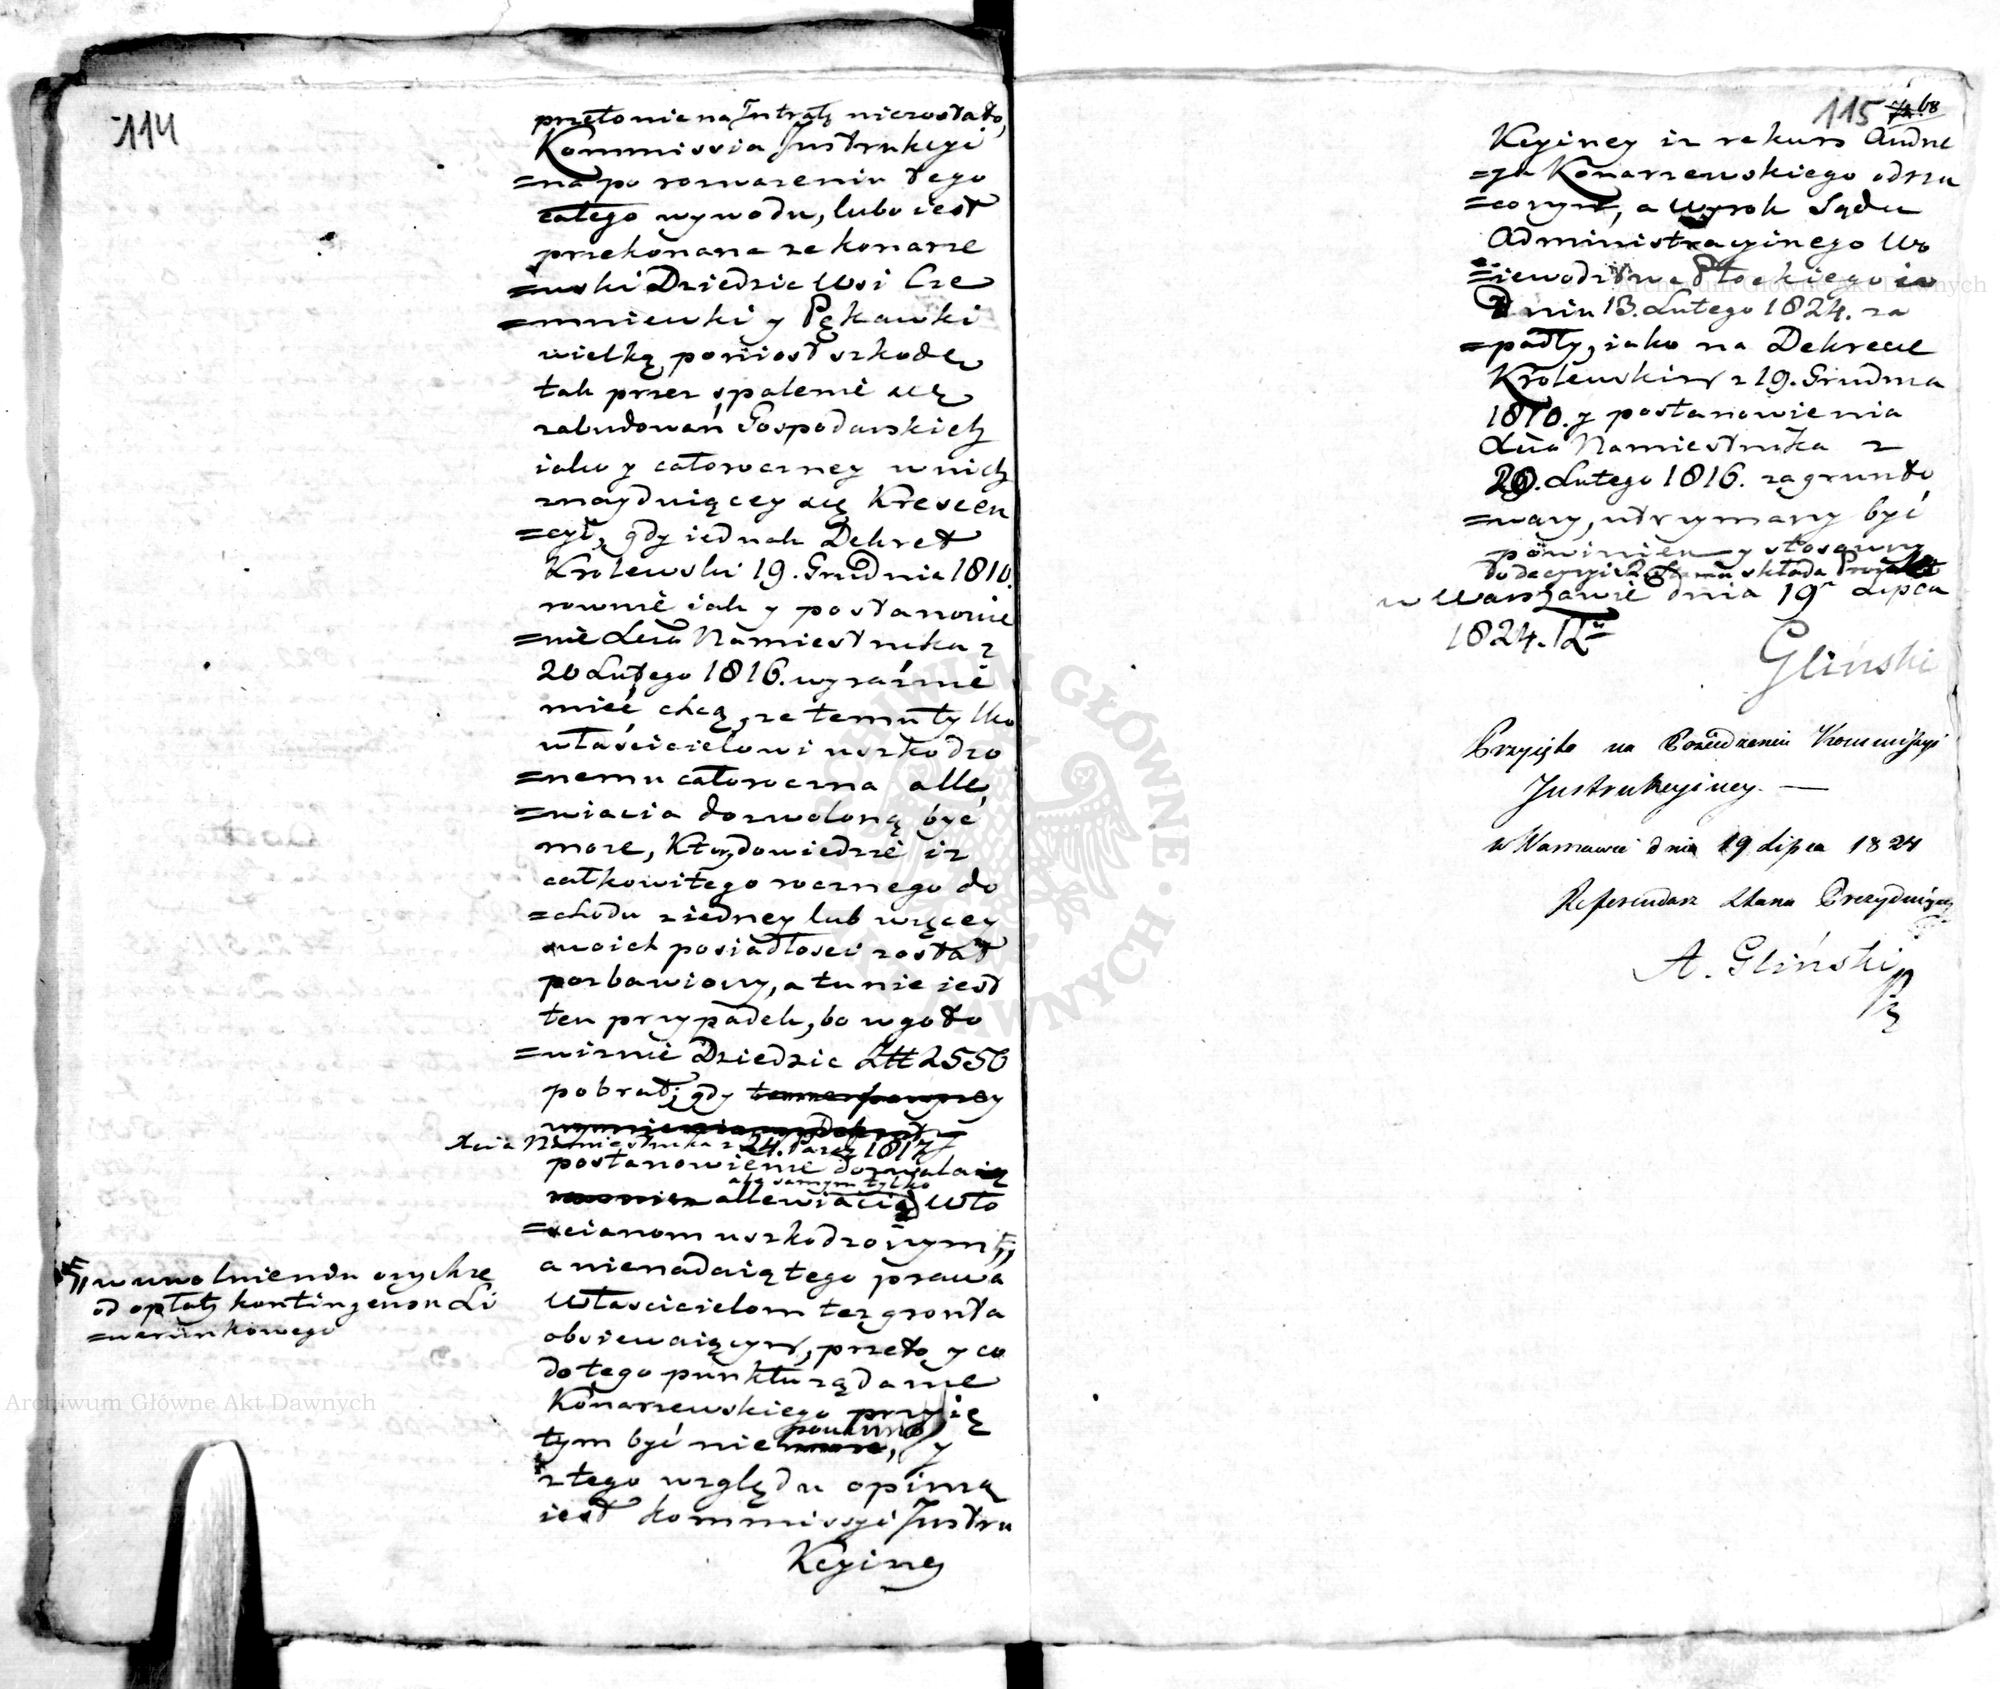 114
przełomie na Intratę niezostało,
Kommissia Instrukcyi
=na po rozwazeniu tego
całego wywodu, lubo iest
przekonana ze Konarze
=wski Dziedzic Wsi Cze
=mniewki y Pękawki
wielką poniosł szkodę
tak przez spalenie się
zabudowań Gospodarskich
iako y całoroczney w nich
znayduiącey się Krescen
=cyi, gdy iednak Dekret
Krolewski 19. Grudnia 1810.
rownie iak y postanowie
=nie Xcia Namiestnika z
20 Lutego 1816. wyraźnie
mieć chcą, ze temu tylko
właścicielowi uszkodzo
=nemu całoroczna alle
=wiacia dozwoloną być
moze, Który dowiedzie iz
całkowitego rocznego do
=chodu z iedney lub więcey
swoich posiadłosci został
pozbawiony, a tu nie iest
ten przypadek, bo w goto
=wiznie Dziedzic Złł 2550
pobrał; gdy
Xcia Namiestnika z 24. Paźdz 1817
postanowienie dozwalaią
ale samym tylko
allewiacią Wło
=scianom uszkodzonym
a nienadaią tego prawa
Włascicielom tez gronta
obsiewaiącym, przeto y co
do tego punktu ządanie
Konarzewskiego przyię
powinno
tym być nie, y
z tego względu opinią
iest Kommissyi Instru
Kcyiney
w uwolnieniu onychze
od opłaty kontingensu Li
=werunkowego
115 68
Kcyiney iz rekurs Andrze
=ja Konarzewskiego odrzu
=conym, a Wyrok Sądu
Administracyinego Wo
=iewodztwa Płockiego w
Dniu 13. Lutego 1824. za
=padły, iako na Dekrecie
Krolewskim z 19. Grudnia
1810. y postanowienia
Xcia Namiestnika z
20. Lutego 1816. zagrunto
=wany, utrzymany być
powinien y stosowny
do decyzyi składa Proiekt
w Warszawie dnia 19 Lipca
1824. R
Gliński
Przyięto na Posiedzeniu Kommissyi
Instrukcyiney. —
w Warszawie dnia 19 Lipca 1824
Referendarz Stanu Prezyduiący
A. Gliński
Archiwum Główne Akt Dawnych
Archiwum Główne Akt Dawnych
ARCHIWUM GŁÓWNE AKT DAWNYCH